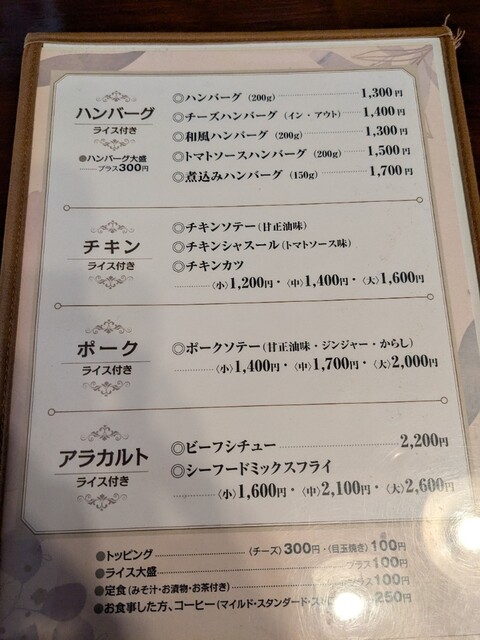 ハンバーグ
ライス付き
●ハンバーグ大盛
プラス300円
◎ハンバーグ (200g) 1,300円
◎チーズハンバーグ (イン・アウト) 1,400円
◎和風ハンバーグ (200g) 1,300円
◎トマトソースハンバーグ (200g) 1,500円
◎煮込みハンバーグ (150g) 1,700円
チキン
ライス付き
◎チキンソテー (甘正油味)
◎チキンシャスール (トマトソース味)
◎チキンカツ
〈小〉1,200円・〈中〉1,400円・〈大〉1,600円
ポーク
ライス付き
◎ポークソテー (甘正油味・ジンジャー・からし)
〈小〉1,400円・〈中〉1,700円・〈大〉2,000円
アラカルト
ライス付き
◎ビーフシチュー 2,200円
◎シーフードミックスフライ
〈小〉1,600円・〈中〉2,100円・〈大〉2,600円
●トッピング 〈チーズ〉300円・〈目玉焼き〉100円
●ライス大盛 プラス100円
●定食 (みそ汁・お漬物・お茶付き) プラス100円
●お食事した方、コーヒー (マイルド・スタンダード・ 250円